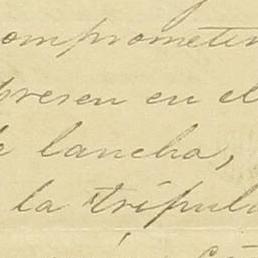 comprometim
presen en el
e lancha,
la tripul